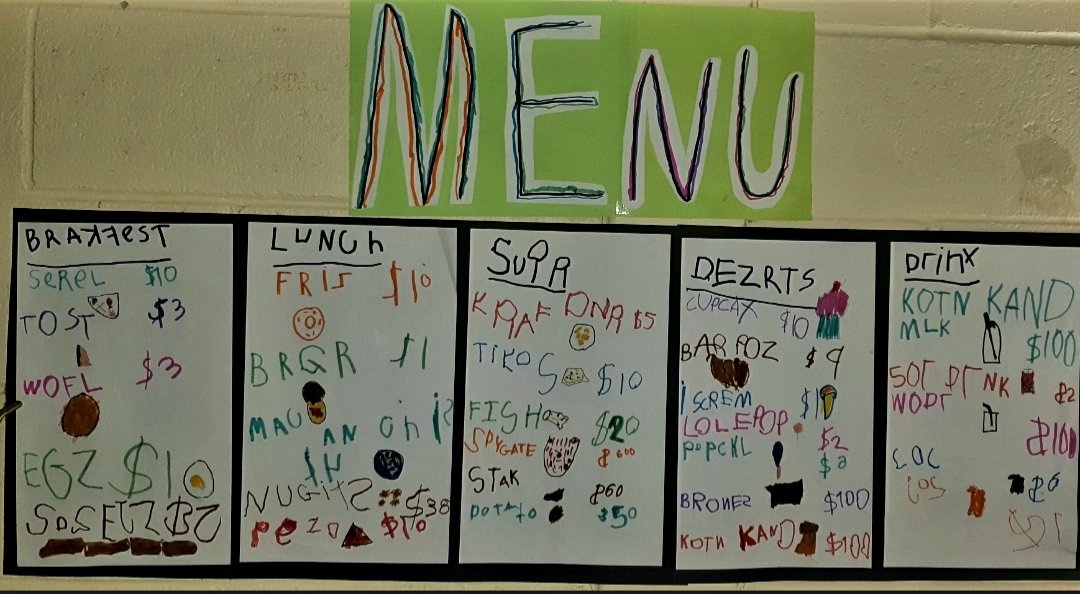 MENU
BRAKFEST
SEREL $10
TOST $3
WOFL $3
EGZ $10
SOSEGZ $2
LUNCh
FRIS $10
BRGR $1
MAC AN Chis
$4
NUGITS $38
PEZO $10
SUPR
KRAF DNR $5
TIKOS $10
FISH $20
SPYGATE $600
STAK $60
POTATO $50
DEZRTS
CUPCAX $10
BAR POZ $9
iSCREM $1
LOLEPOP $2
POPCKL $2
BRONEZ $100
KOTN KAND $100
Drinx
KOTN KAND
MLK $100
SOT DTNK $2
WODT $101
JOC $6